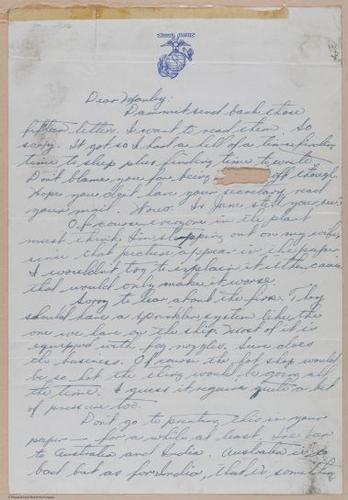 Dear Manley:
Dammit send back those
fifteen letters. I want to read them. So
sorry. It got so I had a hell of a time finding
time to sleep plus finding time to write.
Don't blame you for being off though.
Hope you didn't have your secretary read
your mail. How is June still your
Of course everyone in the plant
must think I'm stepping out on my wife
since that picture appear in the paper
I wouldn't try to explain it either cause
that would only make it worse.
Sorry to hear about the fire. They
should have a sprinkler system like the
one we have on the ship. Most of it is
equipped with fog nozzles. Sure does
the business. Of course the job shop would
be so hot the thing would be going all
the time. I guess it requires quite a bit
of pressure too.
Don't go to printing this in your
paper — for a while at least. I've been
to Australia and India. Australia is
bad but as for India, that is something